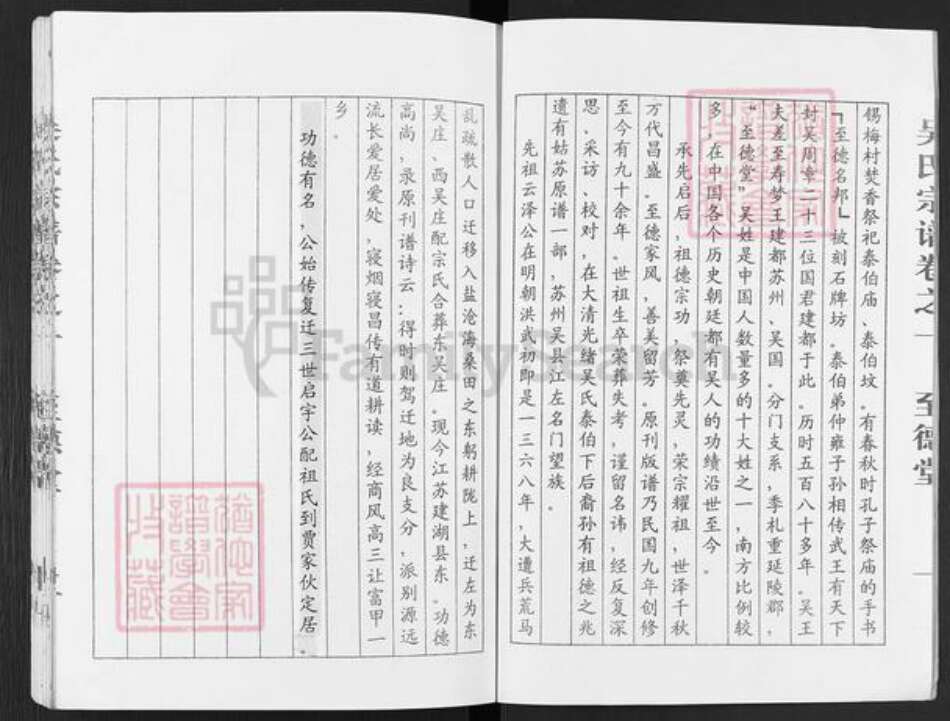 吴氏宗谱卷之一 至德堂
锡梅村焚香祭祀泰伯庙、泰伯坟。有春秋时孔子祭庙的手书
『至德名邦』被刻石牌坊。泰伯弟仲雍子孙相传武王有天下
封吴周章二十三位国君建都于此。历时五百八十多年。吴王
夫差至寿梦王建都苏州、吴国。分门支系，季札重延陵郡，
“至德堂”吴姓是中国人数量多的十大姓之一，南方比例较
多，在中国各个历史朝廷都有吴人的功绩沿世至今。
承先启后，祖德宗功，祭奠先灵，荣宗耀祖，世泽千秋
万代昌盛。至德家风，善美留芳。原刊版谱乃民国九年创修
至今有九十余年。世祖生卒荣葬失考，谨留名讳，经反复深
思、采访、校对，在大清光绪吴氏泰伯下后裔孙有祖德之兆
遗有姑苏原谱一部，苏州吴县江左名门望族。
先祖云泽公在明朝洪武初即是一三六八年，大遭兵荒马
乱疏散人口迁移入盐沧海桑田之东躬耕陇上，迁左为东
吴庄、西吴庄配宗氏合葬东吴庄。现今江苏建湖县东。功德
高尚，录原刊谱诗云：得时则驾迁地为良支分，派别源远
流长爱居爱处，寝烟寝昌传有道耕读，经商风高三让富甲一
乡。
功德有名，公始传复迁三世启宇公配祖氏到贾家伙定居。
FamilySearch